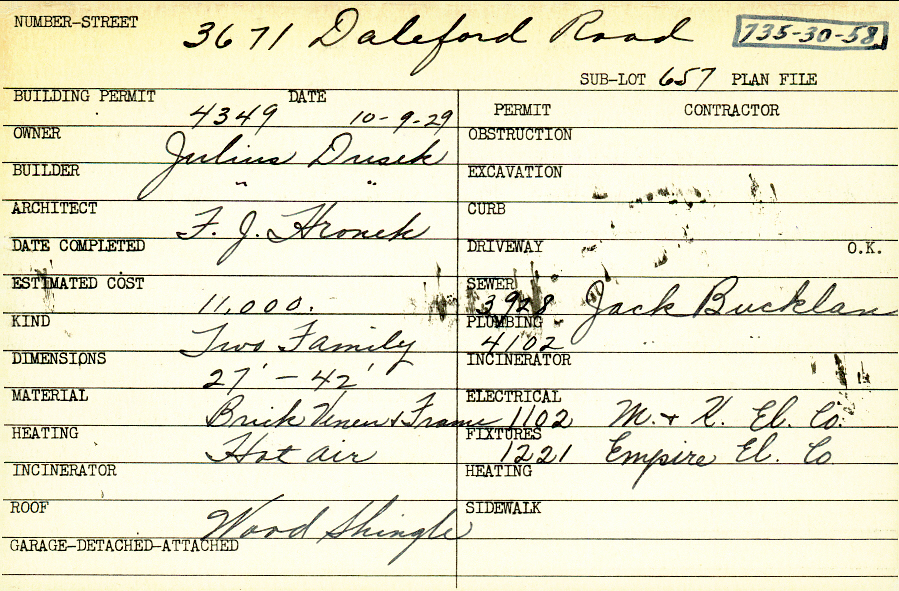 NUMBER-STREET 3671 Daleford Road 735-30-58
SUB-LOT 657 PLAN FILE
BUILDING PERMIT 4349 DATE 10-9-29
OWNER Julius Dusek
BUILDER " "
ARCHITECT F. J. Hronek
DATE COMPLETED
ESTIMATED COST 11,000.
KIND Two Family
DIMENSIONS 27' - 42'
MATERIAL Brick Veneer & Frame
HEATING Hot air
INCINERATOR
ROOF Wood Shingle
GARAGE-DETACHED-ATTACHED
PERMIT CONTRACTOR
OBSTRUCTION
EXCAVATION
CURB
DRIVEWAY O.K.
SEWER 3928 Jack Bucklan
PLUMBING 4102 " "
INCINERATOR
ELECTRICAL 1102 M. & K. El. Co.
FIXTURES 1221 Empire El. Co
HEATING
SIDEWALK